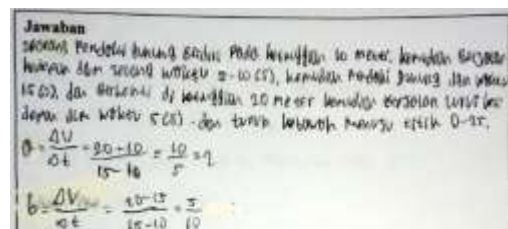 Jawaban
seorang Pendaki gunung berdiri Pada ketinggian 10 meter, kemudian berjalan
dan waktu 0-10 (s), kemudian Pendaki gunung dan waktu
15 (s), dan berhenti di ketinggian 20 meter kemudian berjalan lurus ke
depan dan waktu 5 (s) dan turun kebawah menuju titik 0-25.
a = ΔV/Δt = 20-10/15-10 = 10/5 = 2
b = ΔV/Δt = 20-15/25-10 = 5/10